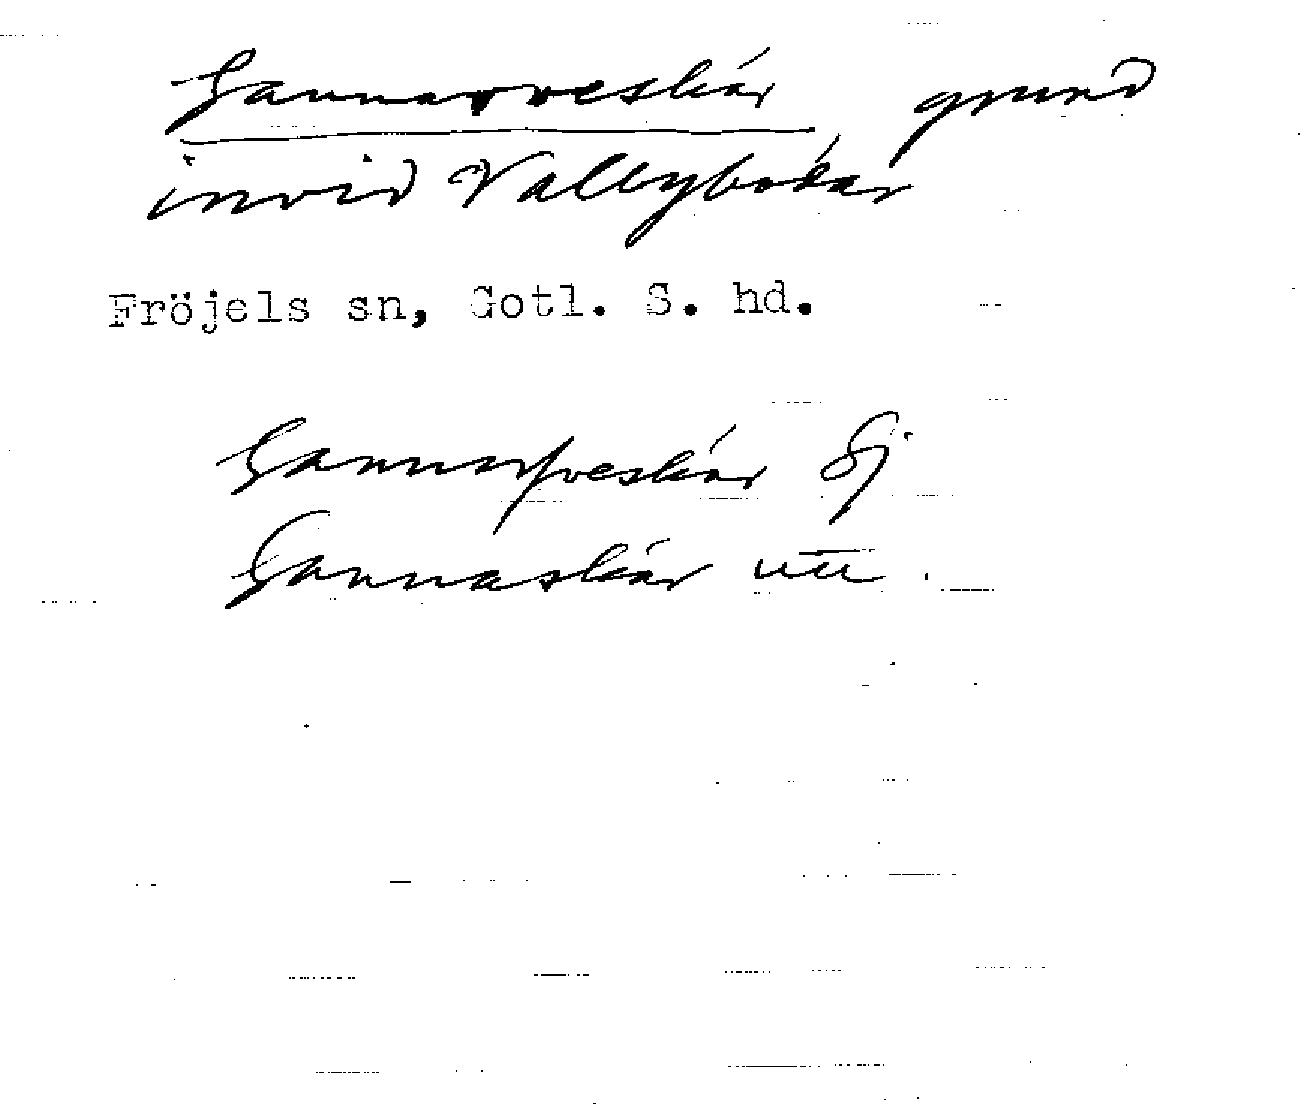 Gannarveskär grund
invid Vallybådar
Fröjels sn, Gotl. S. hd.
Gannarfveskär Sj
Gannaskär utt.